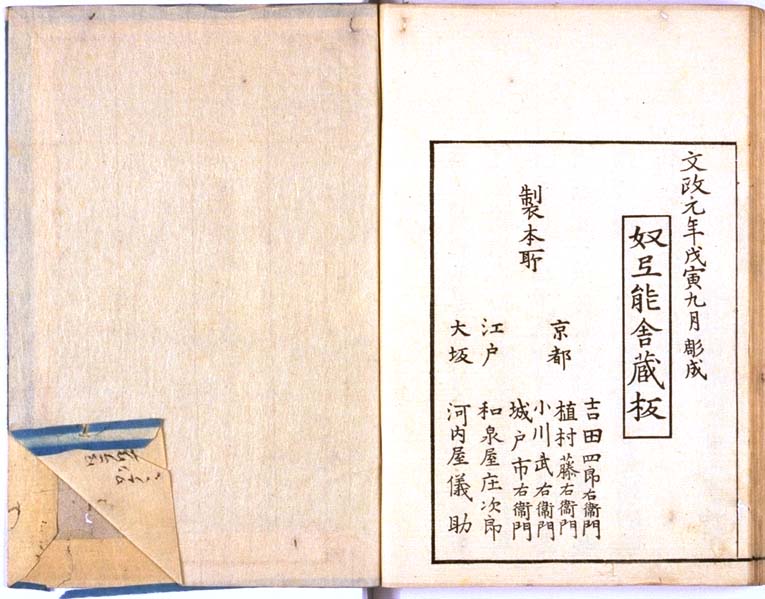 文政元年戊寅九月彫成
奴弖能舎蔵板
製本所
京都
吉田四郎右衞門
植村藤右衞門
小川武右衞門
城戸市右衞門
江戸
和泉屋庄次郎
大坂
河内屋儀助